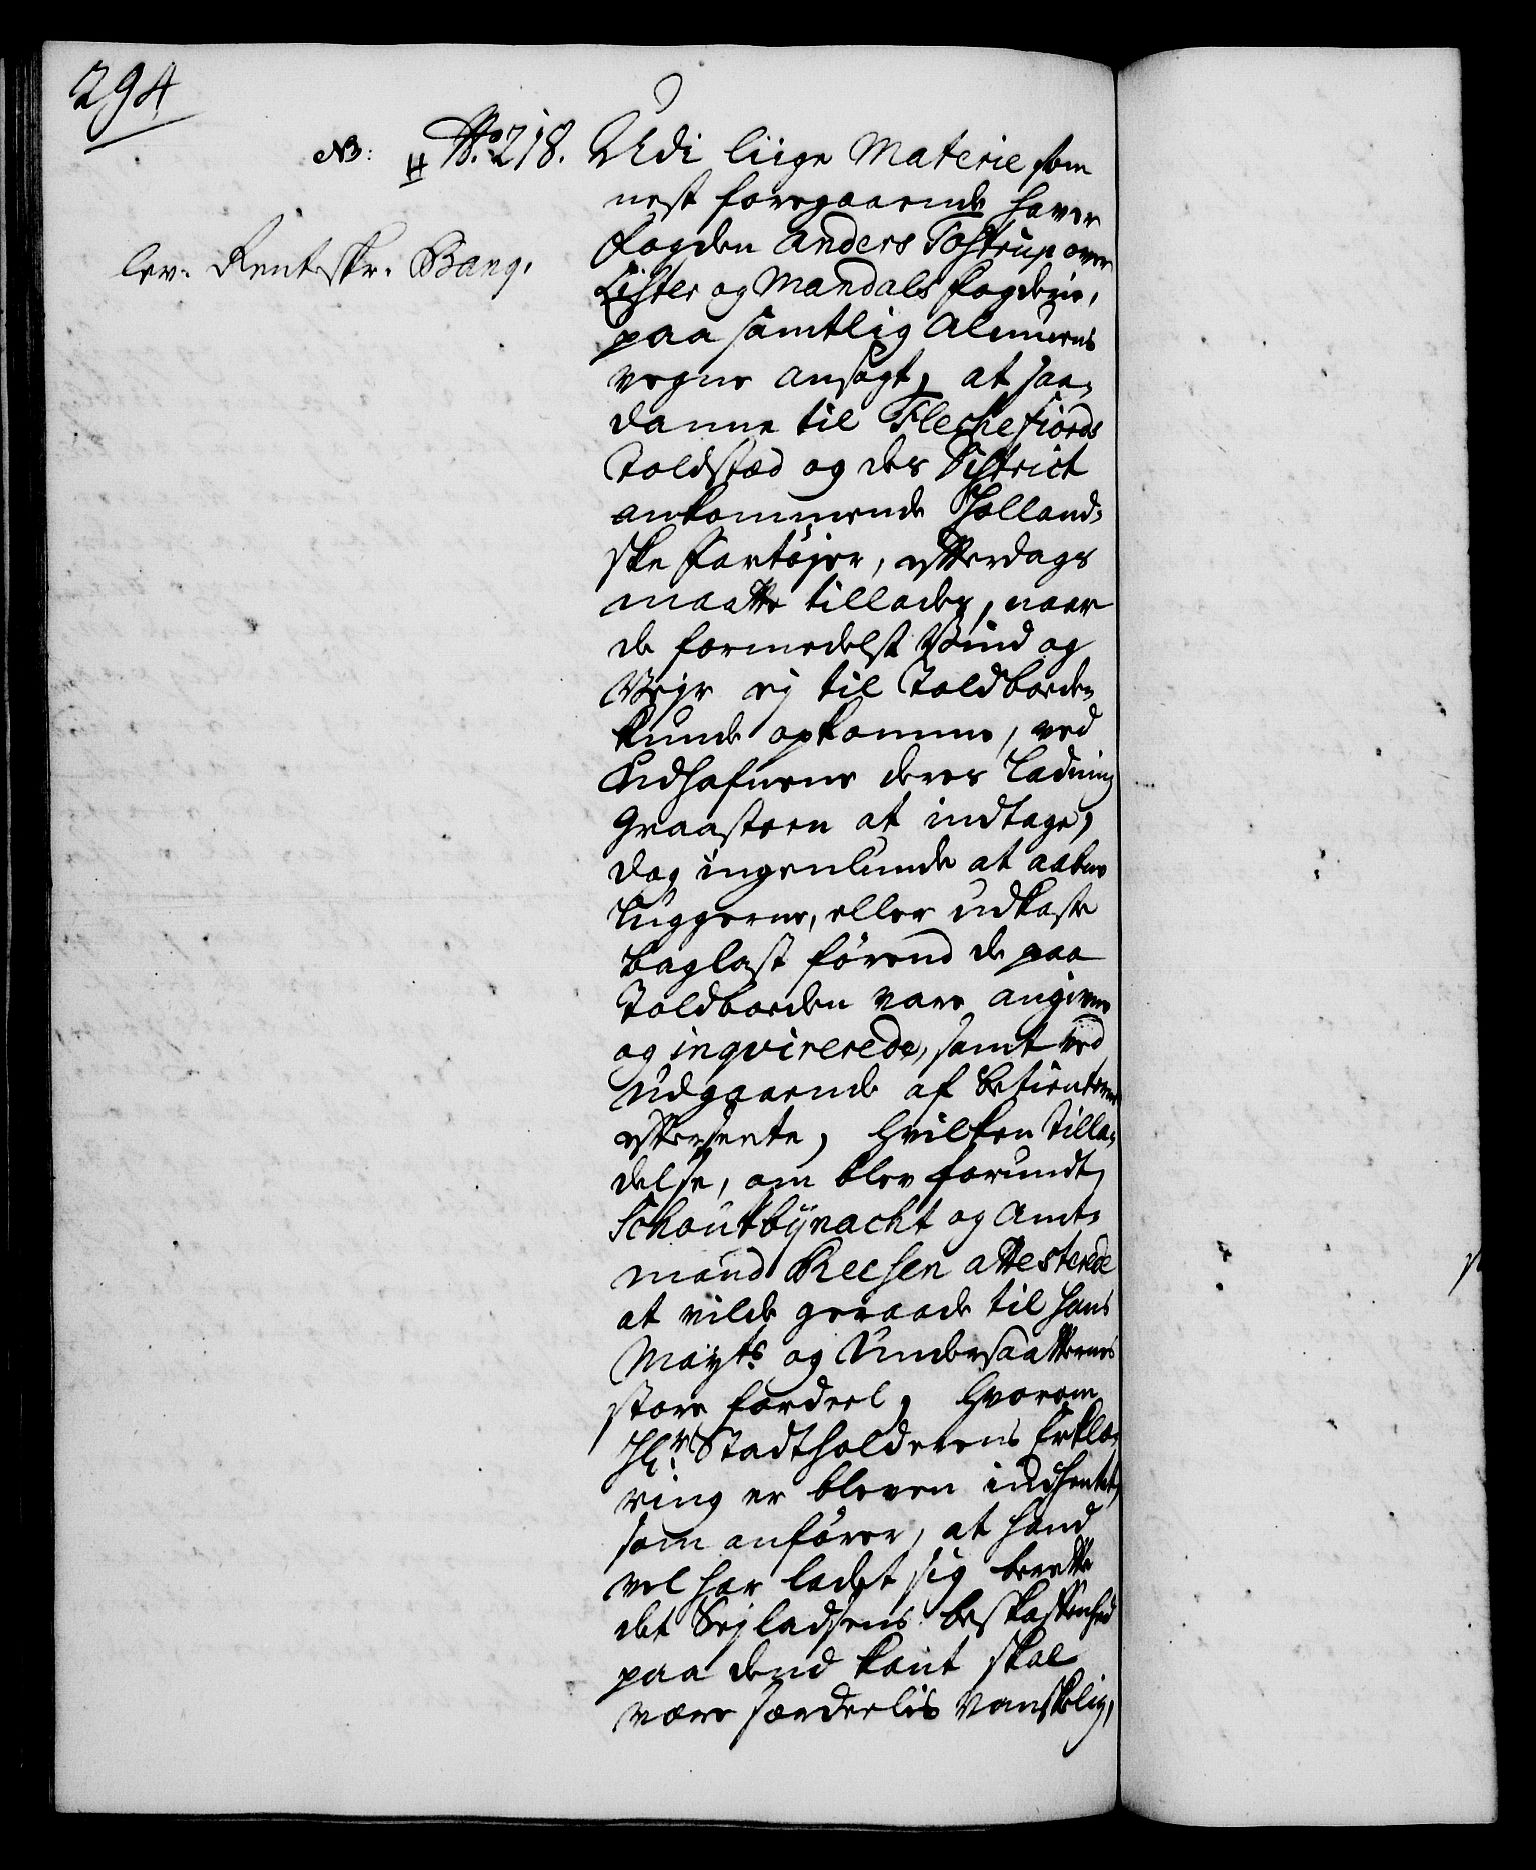 294
NB: # No. 218. Udi liige Materie som
nest foregaaende haver
fogden Anders Tostrup over
lev. Rentskr. Bang.
Lister og Mandals fogderie,
paa samtlig Almuens
vegne ansøgt, at saa-
danne til Flechefiords
Toldsted og des District
ankommende Holland-
ske Fartøjer, efterdags
maatte tillades, naar
de formedelst Vind og
Vejr ej til Toldboeden
kunde opkomme, ved
Udhafnene deres Ladning
Graasteen at indtage,
dog ingenlunde at aabne
Luggerne, eller udkaste
Baglast førend de paa
Toldboeden vare angivne
og inqvirerede, samt ved
Udgaaende af Betienterne
efterseete, hvilken Tilla-
delse, om blev forundt,
Schoutbynacht og Amt-
mand Reesen attesterede
at vilde geraade til Hans
Mayts. og Undersaatternes
store fordeel, hvorom
Hr. Stadtholderens Erklæ-
ring er bleven indhentet,
som anfører, at hand
vel har ladet sig berette
det Sejladsens beskaffenhed
paa dend kant skal
være særdeelis vanskelig,